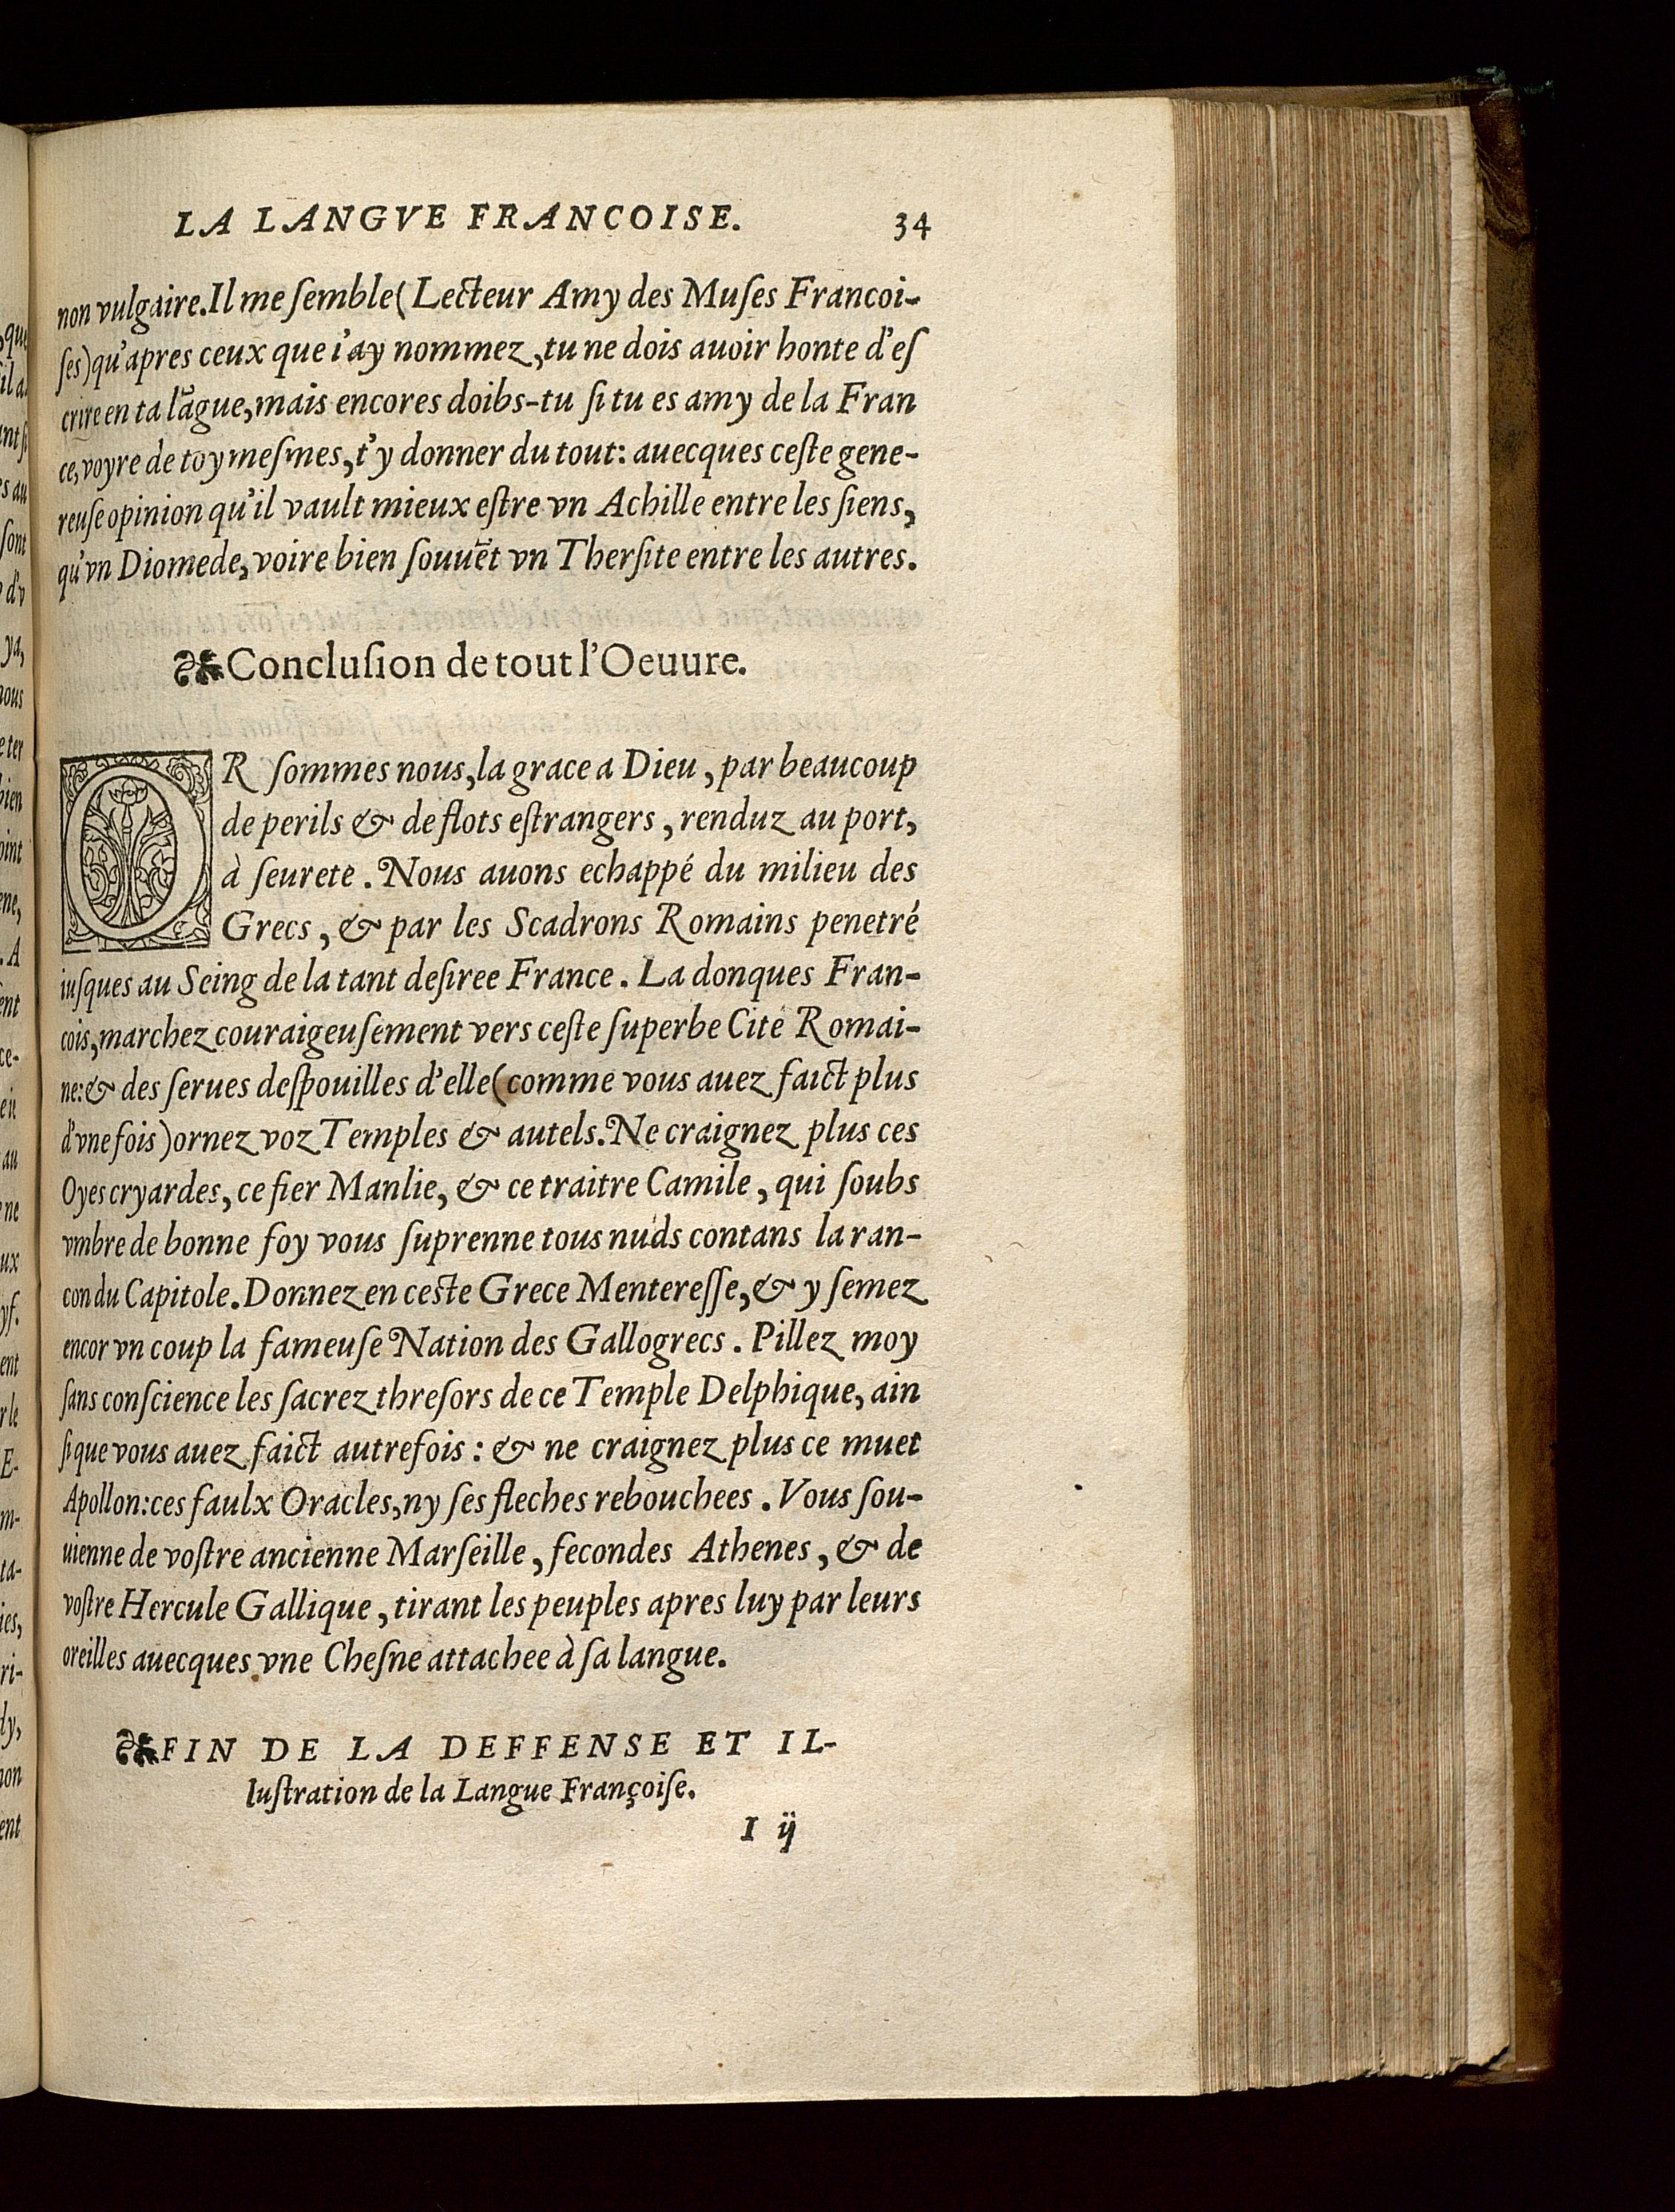 LA LANGVE FRANCOISE. 34
non vulgaire. Il me ſemble (Lecteur Amy des Muſes Francoi-
ſes) qu'apres ceux que i'ay nommez, tu ne dois auoir honte d'eſ
crire en ta lāgue, mais encores doibs-tu ſi tu es amy de la Fran
ce, voyre de toymeſmes, t'y donner du tout: auecques ceſte gene-
reuſe opinion qu'il vault mieux eſtre vn Achille entre les ſiens,
qu'vn Diomede, voire bien ſouuēt vn Therſite entre les autres.
Concluſion de tout l'Oeuure.
OR ſommes nous, la grace a Dieu, par beaucoup
de perils & de flots eſtrangers, renduz au port,
à ſeurete. Nous auons echappé du milieu des
Grecs, & par les Scadrons Romains penetré
iuſques au Seing de la tant deſiree France. La donques Fran-
cois, marchez couraigeuſement vers ceſte ſuperbe Cité Romai-
ne: & des ſerues deſpouilles d'elle (comme vous auez faict plus
d'vne fois) ornez voz Temples & autels. Ne craignez plus ces
Oyes cryardes, ce fier Manlie, & ce traitre Camile, qui ſoubs
vmbre de bonne foy vous ſuprenne tous nuds contans la ran-
con du Capitole. Donnez en ceste Grece Mentereſſe, & y ſemez
encor vn coup la fameuſe Nation des Gallogrecs. Pillez moy
ſans conſcience les ſacrez threſors de ce Temple Delphique, ain
ſi que vous auez faict autrefois: & ne craignez plus ce muet
Apollon: ces faulx Oracles, ny ſes fleches rebouchees. Vous ſou-
uienne de voſtre ancienne Marſeille, ſecondes Athenes, & de
voſtre Hercule Gallique, tirant les peuples apres luy par leurs
oreilles auecques vne Cheſne attachee à ſa langue.
FIN DE LA DEFFENSE ET IL-
luſtration de la Langue Françoiſe.
I ij